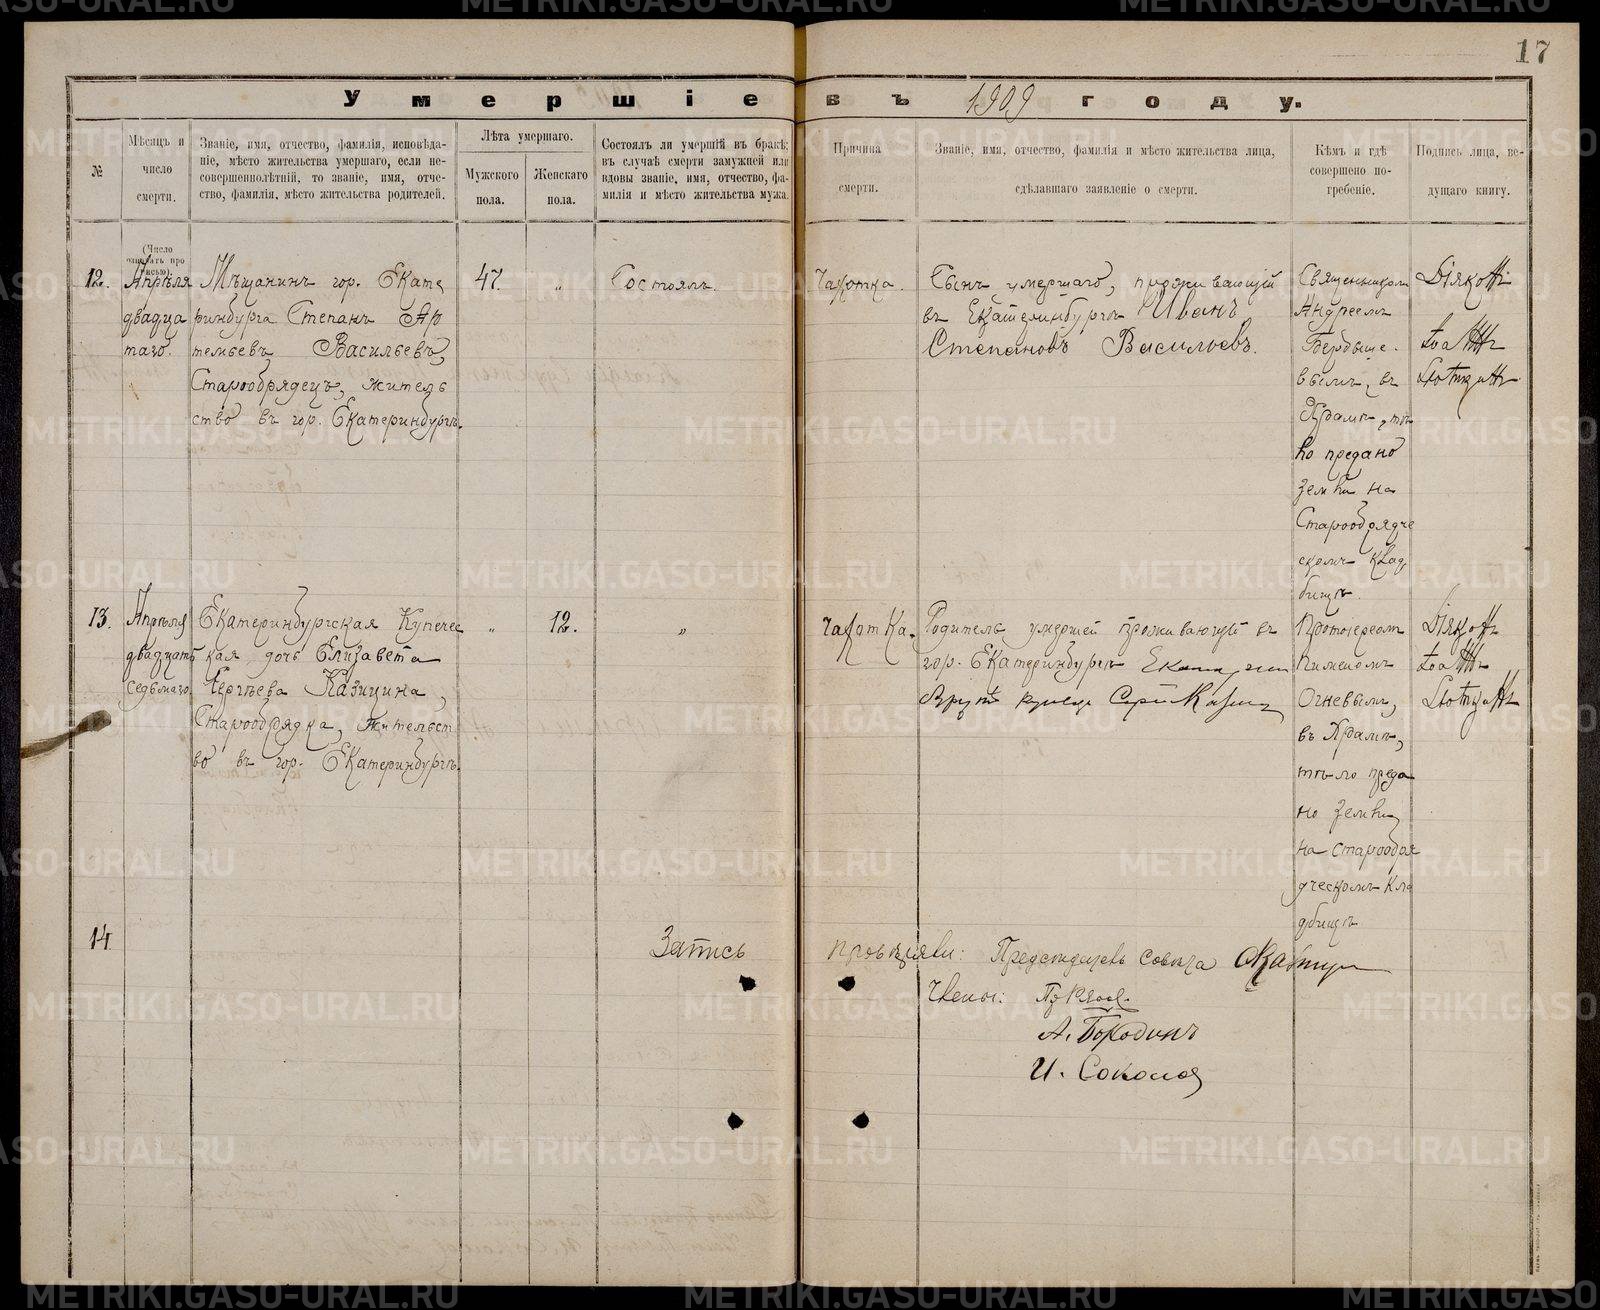 17
Умершіе въ 1909 году.
№
Мѣсяцъ и
число
смерти.
Званіе, имя, отчество, фамилія, исповѣда-
ніе, мѣсто жительства умершаго, если не-
совершеннолѣтній, то званіе, имя, отче-
ство, фамилія, мѣсто жительства родителей.
Лѣта умершаго.
Мужского
пола.
Женскаго
пола.
Состоялъ ли умершій въ бракѣ;
въ случаѣ смерти замужней или
вдовы званіе, имя, отчество, фа-
милія и мѣсто жительства мужа.
Причина
смерти.
Званіе, имя, отчество, фамилія и мѣсто жительства лица,
сдѣлавшаго заявленіе о смерти.
Кѣмъ и гдѣ
совершено по-
гребеніе.
Подпись лица, ве-
дущаго книгу.
(Число
означать про
писью).
12.
Апрѣля
двадца
таго.
Мѣщанинъ гор. Екате
ринбурга Степанъ Ар
темьевъ Васильевъ,
Старообрядецъ, житель
ство въ гор. Екатеринбургѣ.
47.
„
Состоялъ.
Чахотка.
Сынъ умершаго, проживающій
въ Екатеринбургѣ Иванъ
Степановъ Васильевъ.
Священником
Андреемъ
вымъ, въ
Храмѣ, тѣ
ло предано
землѣ на
Старообрядче
скомъ клад
бищѣ.
Діякон
13.
Апрѣля
двадцать
седьмаго.
Екатеринбургская Купечес
кая дочь Елизавета
Сергѣева Казицина,
Старообрядка, Жительст
во въ гор. Екатеринбургѣ.
„
12.
„
Чахотка.
Родитель умершей проживающій въ
гор. Екатеринбургѣ
купецъ
Протоіереом
Пименомъ
Огневымъ,
въ Храмѣ,
тѣло преда
но землѣ,
на старообря
дческомъ кла
дбищѣ
Діякон
14
Запись провѣряли: Председатель совѣта
Члены:
А. Бородинъ
И. Соколов
METRIKI.GASO-URAL.RU